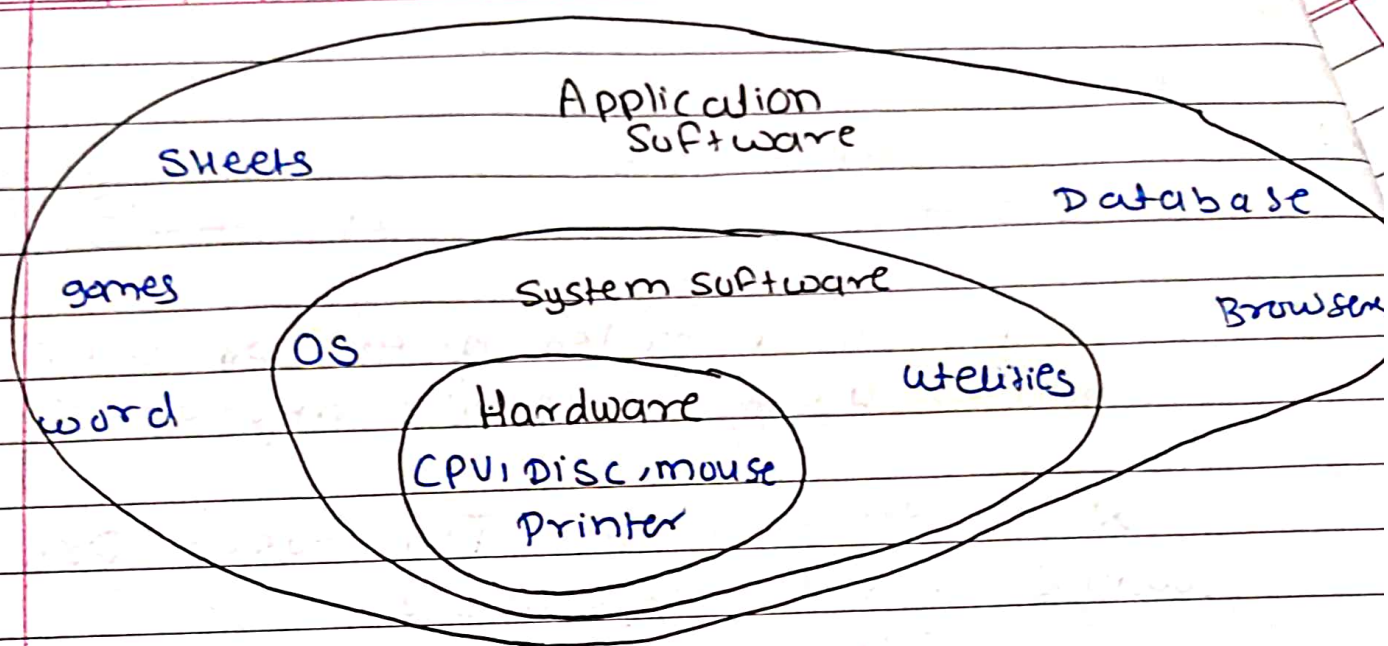 Application
Software
Sheets
Database
games
System Software
Browser
OS
utelities
Hardware
word
CPU, Disc, mouse
Printer